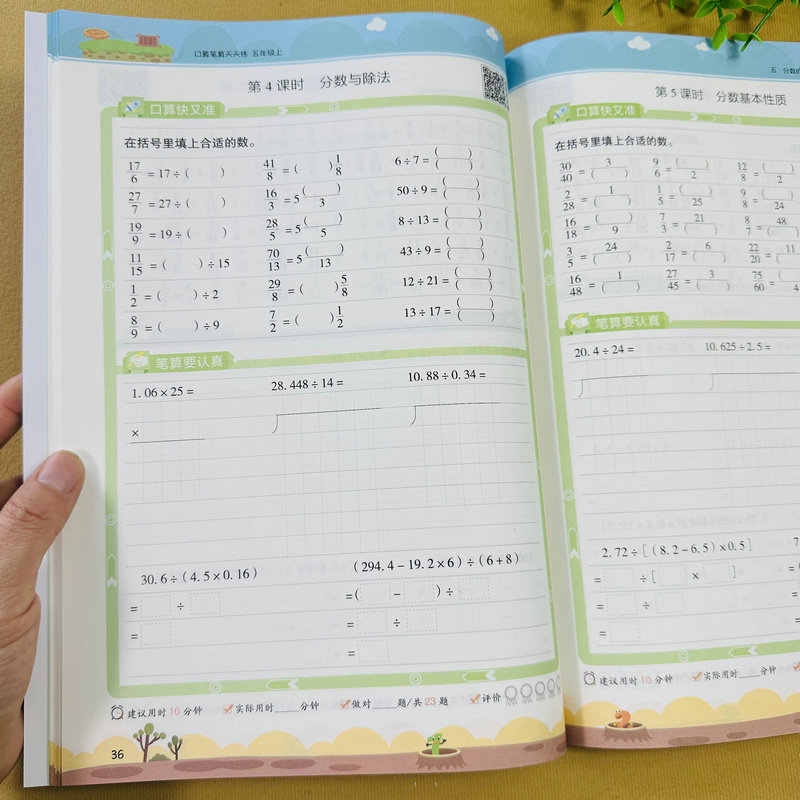 口算笔算天天练 五年级上
第 4 课时 分数与除法
口算快又准
在括号里填上合适的数。
17/6 = 17 ÷ ( ) 41/8 = ( ) 1/8 6 ÷ 7 = ( )/( )
27/7 = 27 ÷ ( ) 16/3 = 5 ( )/3 50 ÷ 9 = ( )/( )
19/9 = 19 ÷ ( ) 28/5 = 5 ( )/5 8 ÷ 13 = ( )/( )
11/15 = ( ) ÷ 15 70/13 = 5 ( )/13 43 ÷ 9 = ( )/( )
1/2 = ( ) ÷ 2 29/8 = ( ) 5/8 12 ÷ 21 = ( )/( )
8/9 = ( ) ÷ 9 7/2 = ( ) 1/2 13 ÷ 17 = ( )/( )
笔算要认真
1.06 × 25 = 28.448 ÷ 14 = 10.88 ÷ 0.34 =
×
30.6 ÷ ( 4.5 × 0.16 ) ( 294.4 − 19.2 × 6 ) ÷ ( 6 + 8 )
= ÷ = ( − ) ÷
= = ÷
=
建议用时 10 分钟 实际用时 分钟 做对 题/共 23 题 评价
36
五 分数的
第 5 课时 分数基本性质
口算快又准
在括号里填上合适的数。
30/40 = 3/( ) 9/6 = ( )/2 12/8 = ( )/2
2/28 = 1/( ) 1/5 = ( )/25 9/8 = ( )/24
16/18 = ( )/9 7/3 = 21/( ) 8/7 = 48/( )
3/5 = 24/( ) 2/17 = 6/( ) 22/20 = 11/( )
16/48 = 1/( ) 27/45 = 3/( ) 75/60 = ( )/4
笔算要认真
20.4 ÷ 24 = 10.625 ÷ 2.5 =
2.72 ÷ [ ( 8.2 − 6.5 ) × 0.5 ] 7
= ÷ [ × ] =
= ÷
=
建议用时 10 分钟 实际用时 分钟